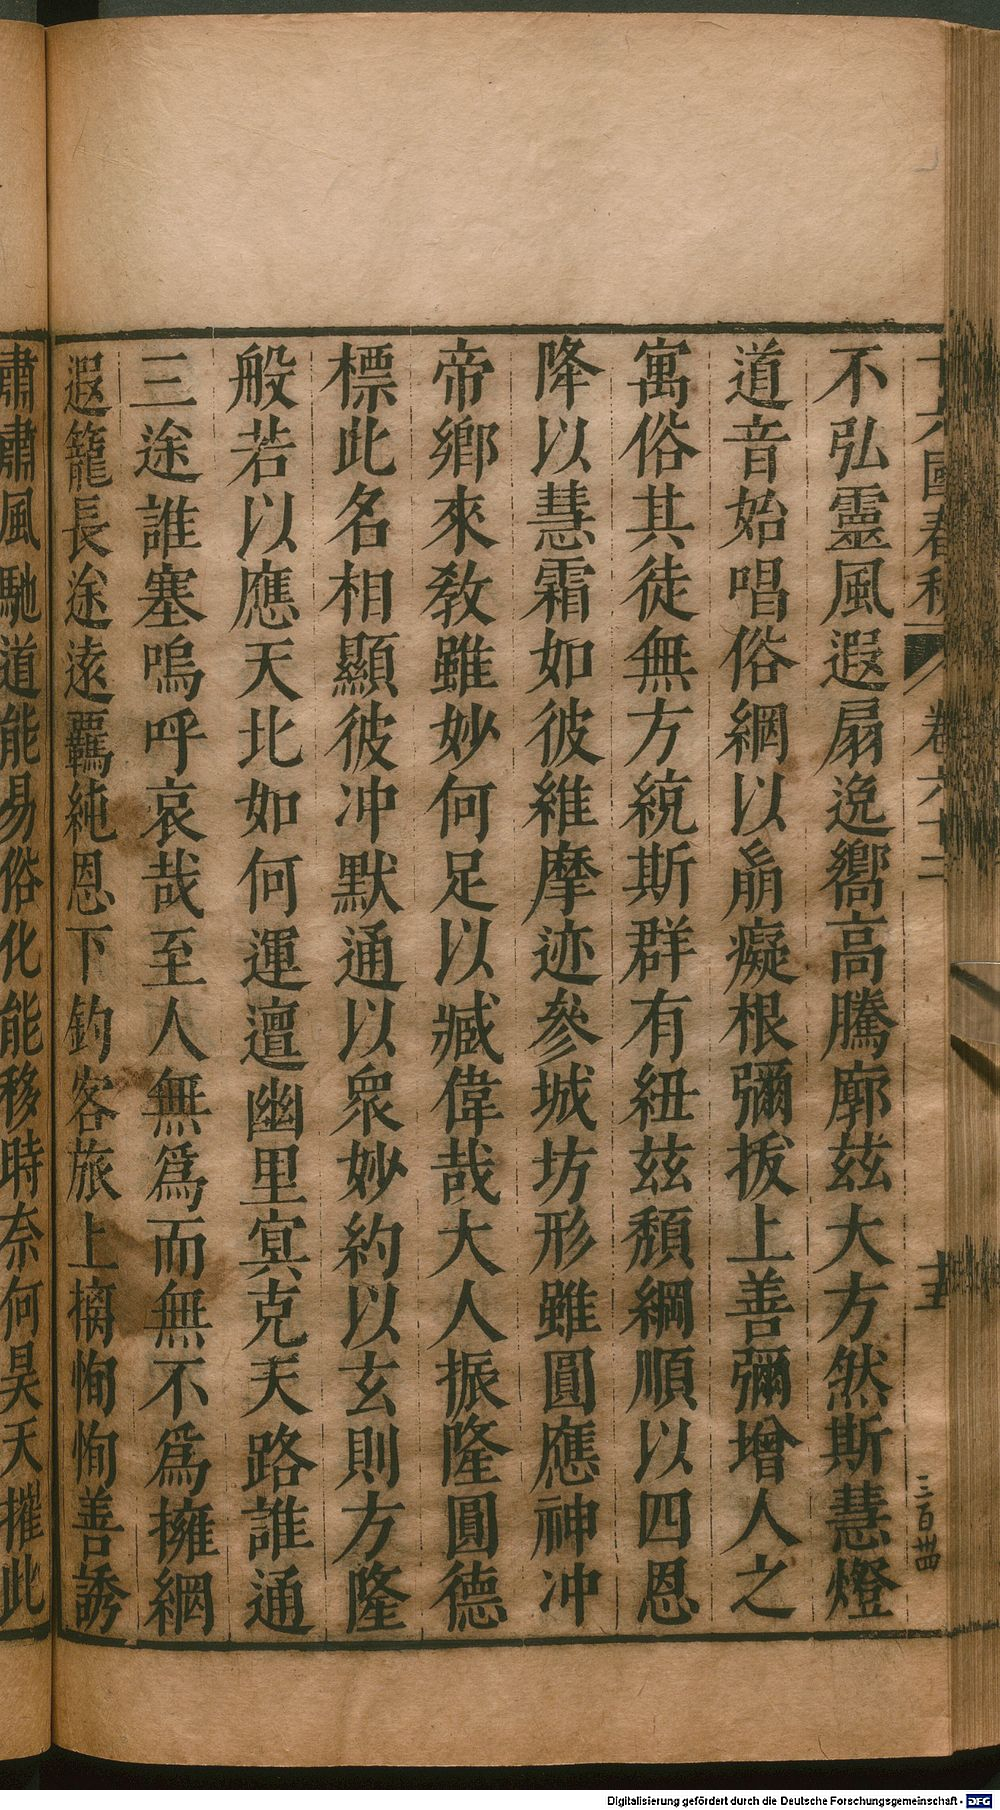 十六國春秋 卷六十二 十五
三百卌四
不弘靈風遐扇逸嚮高騰廓茲大方然斯慧燈
道音始唱俗網以崩癡根彌拔上善彌增人之
寓俗其徒無方統斯群有紐茲頹綱順以四恩
降以慧霜如彼維摩迹參城坊形雖圓應神冲
帝鄉來教雖妙何足以臧偉哉大人振隆圓德
標此名相顯彼冲默通以衆妙約以玄則方隆
般若以應天北如何運邅幽里冥克天路誰通
三途誰塞嗚呼哀哉至人無爲而無不爲擁網
遐籠長途遠羈純恩下釣客旅上摛恂恂善誘
肅肅風馳道能易俗化能移時奈何昊天摧此
Digitalisierung gefördert durch die Deutsche Forschungsgemeinschaft - DFG